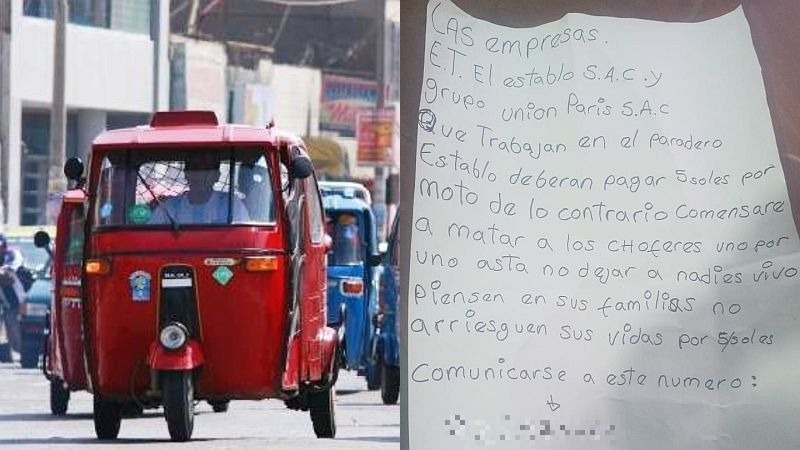 LAS empresas.
E.T. El establo S.A.C. y
grupo union Paris S.A.C
Que Trabajan en el paradero
Establo deberan pagar 5soles por
moto de lo contrario Comensare
a matar a los CHoferes uno por
uno asta no dejar a nadies vivo
Piensen en sus familias no
arriesguen sus vidas por 5/soles
Comunicarse a este numero: